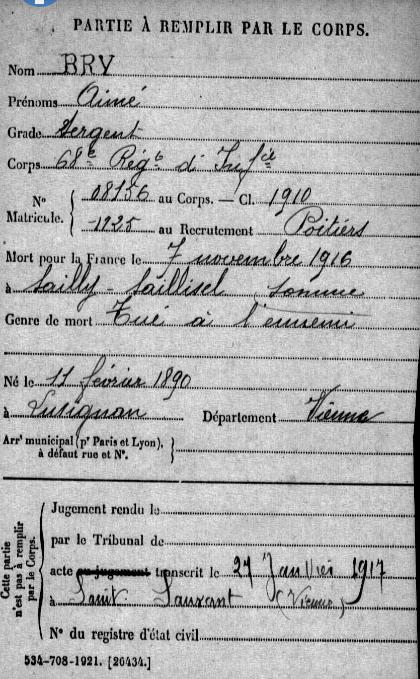 PARTIE À REMPLIR PAR LE CORPS.
Nom BRY
Prénoms Aimé
Grade Sergent
Corps 68e Régt d'Infie
N° Matricule. { 08156 au Corps. — Cl. 1910
1925 au Recrutement Poitiers
Mort pour la France le 7 novembre 1916
à Sailly-Saillisel Somme
Genre de mort Tué à l'ennemi
Né le 11 février 1890
à Lusignan Département Vienne
Arrt municipal (pr Paris et Lyon), à défaut rue et N°. }
Cette partie n'est pas à remplir par le Corps.
Jugement rendu le
par le Tribunal de
acte ou jugement transcrit le 21 Janvier 1917
à Saint Sauvant (Vienne)
N° du registre d'état civil
534-708-1921. [26434.]